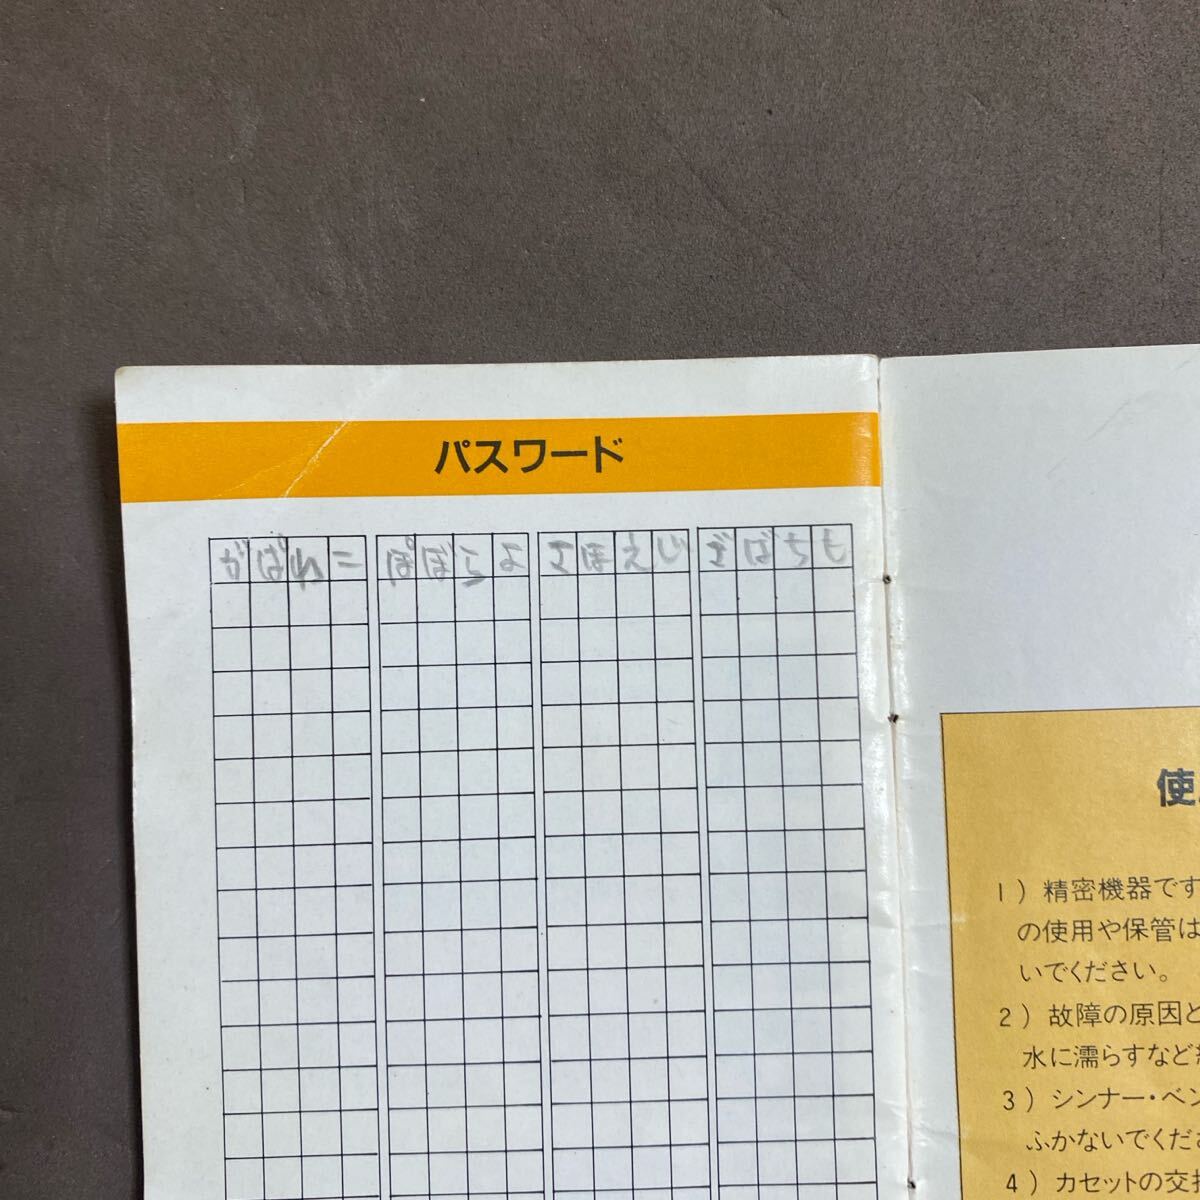 パスワード
がぱれこ ぽぼらよ さほえじ ざばちも
使
1）精密機器です
の使用や保管は
いでください。
2）故障の原因と
水に濡らすなど
3）シンナー・ベン
ふかないでくださ
4）カセットの交換